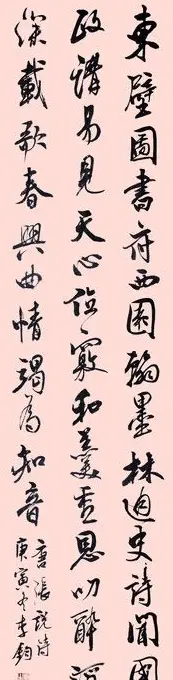 東壁圖書府西園翰墨林史詩聞國
政講易見天心位竊和羹重恩叨醉
深載歌春興曲情竭為知音
唐張說詩
庚寅冬李鈞